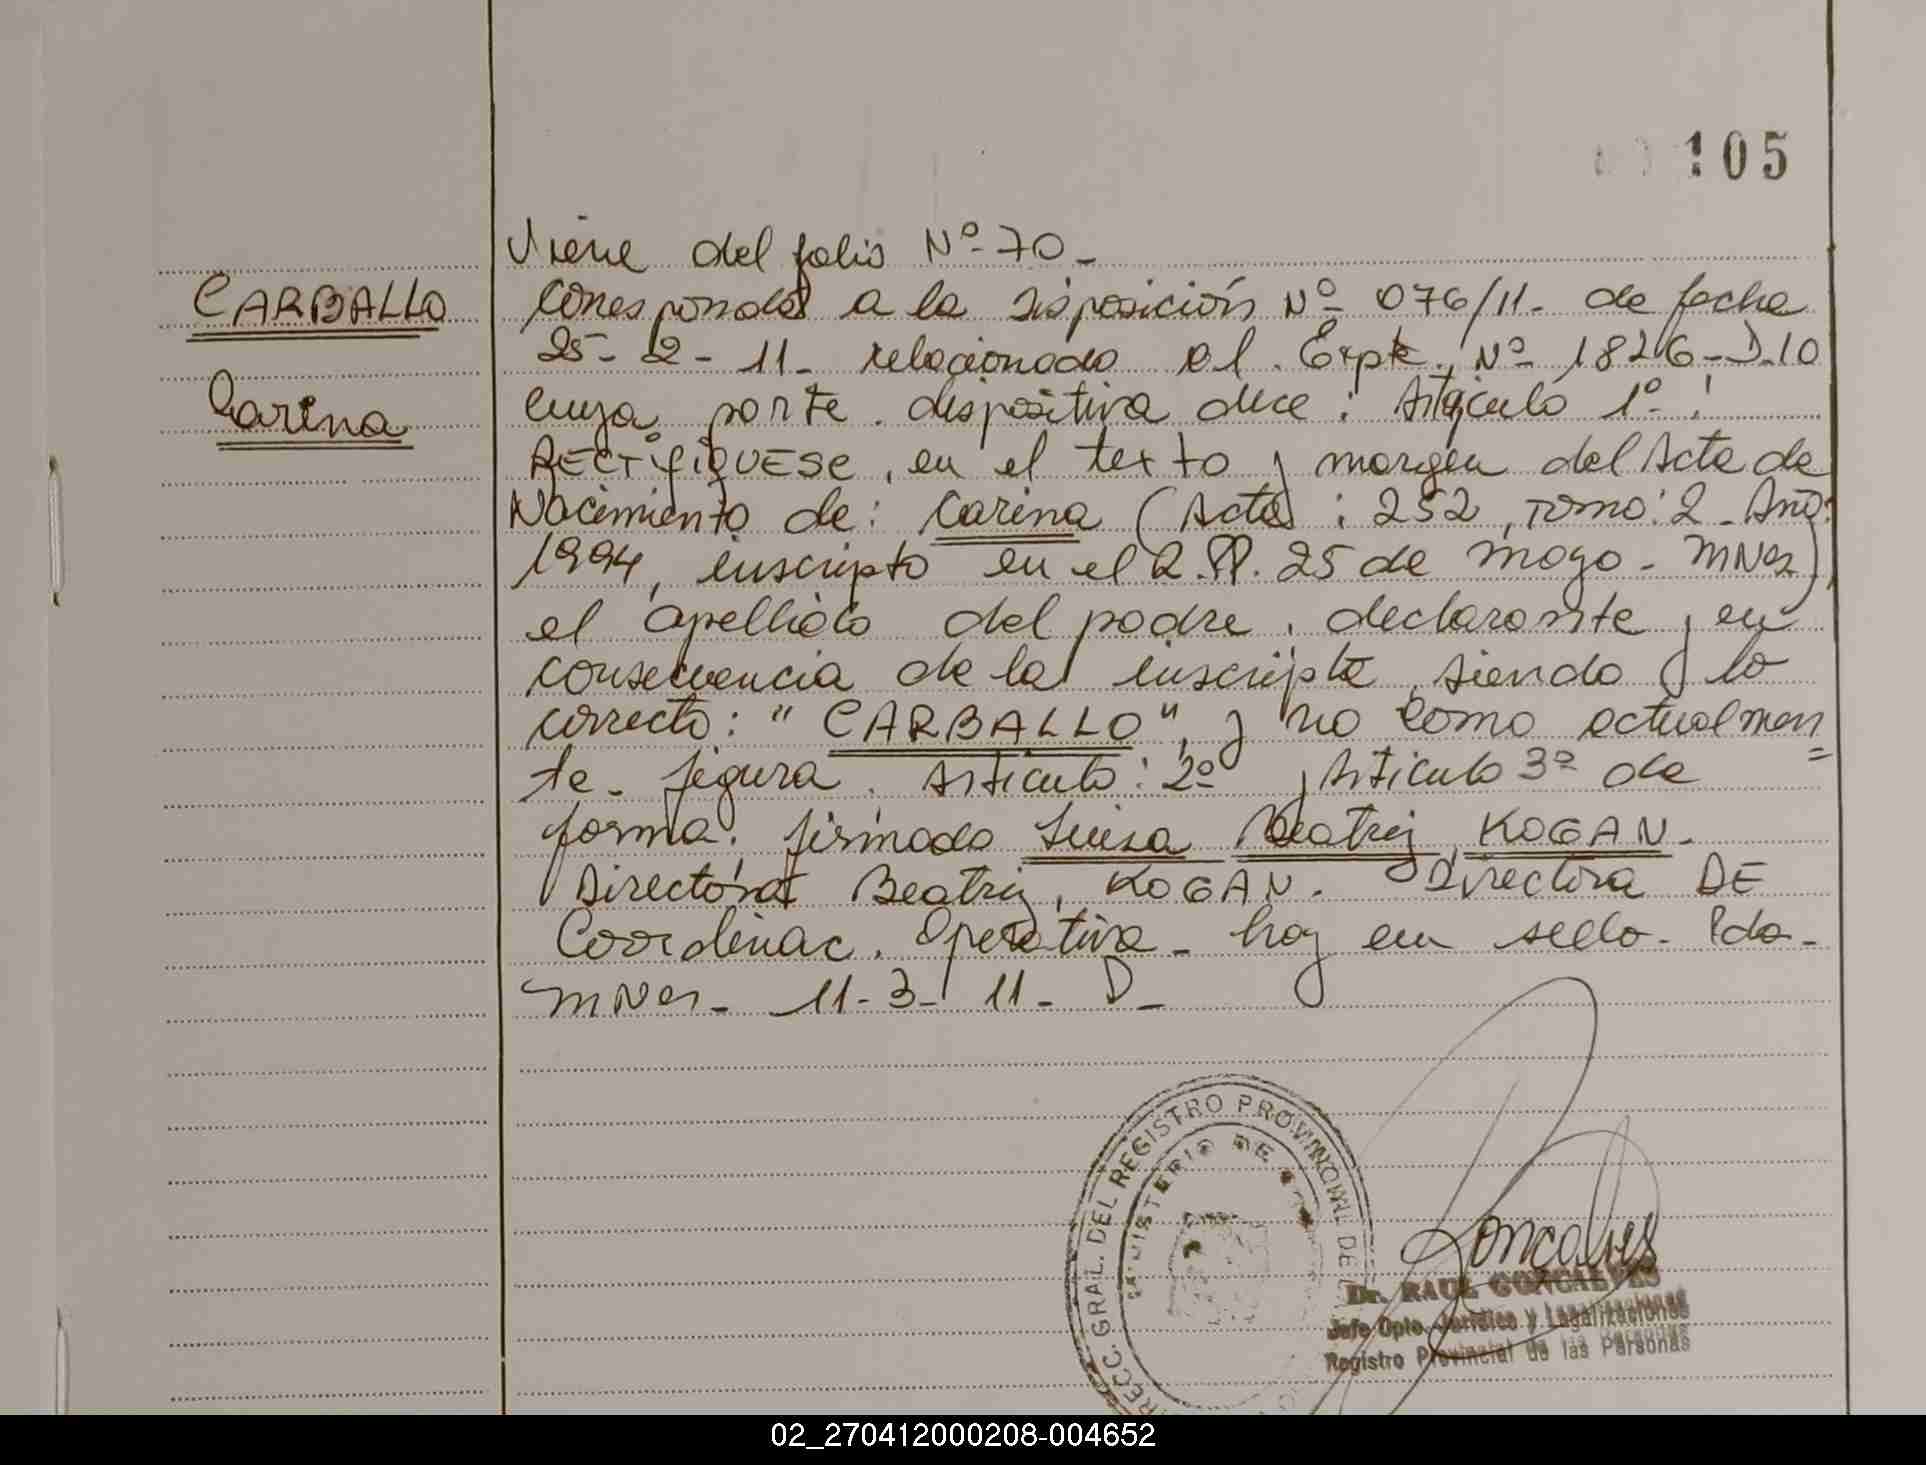 105
Viene del folio Nº 70_
CARBALLO
Corresponde a la Disposición Nº 076/11- de fecha
25-2-11_ relacionado al Expte. Nº 1826-D-10
Carina
cuya parte dispositiva dice: Artículo 1º:
RECTIFIQUESE, en el texto y margen del Acta de
Nacimiento de: Carina (Acta: 252, Tomo: 2_Año:
1994, inscripto en el R.PP. 25 de Mayo - MNes)
el apellido del padre, declarante y en
consecuencia de la inscripta, siendo lo
correcto: "CARBALLO", y no como actualmen=
te_ figura. Artículo: 2º y Artículo 3º de
forma. firmado Luisa Beatriz KOGAN_
Directora Beatriz KOGAN. Directora DE
Coordinac. Operativa_ hay un sello_ Pda_
MNes_ 11-3-11_ D_
DIRECC. GRAL. DEL REGISTRO PROVINCIAL DE
MINISTERIO DE
Goncalves
Dr. RAUL GONCALVES
Jefe Dpto. Jurídico y Legalizaciones
Registro Provincial de las Personas
02_270412000208-004652